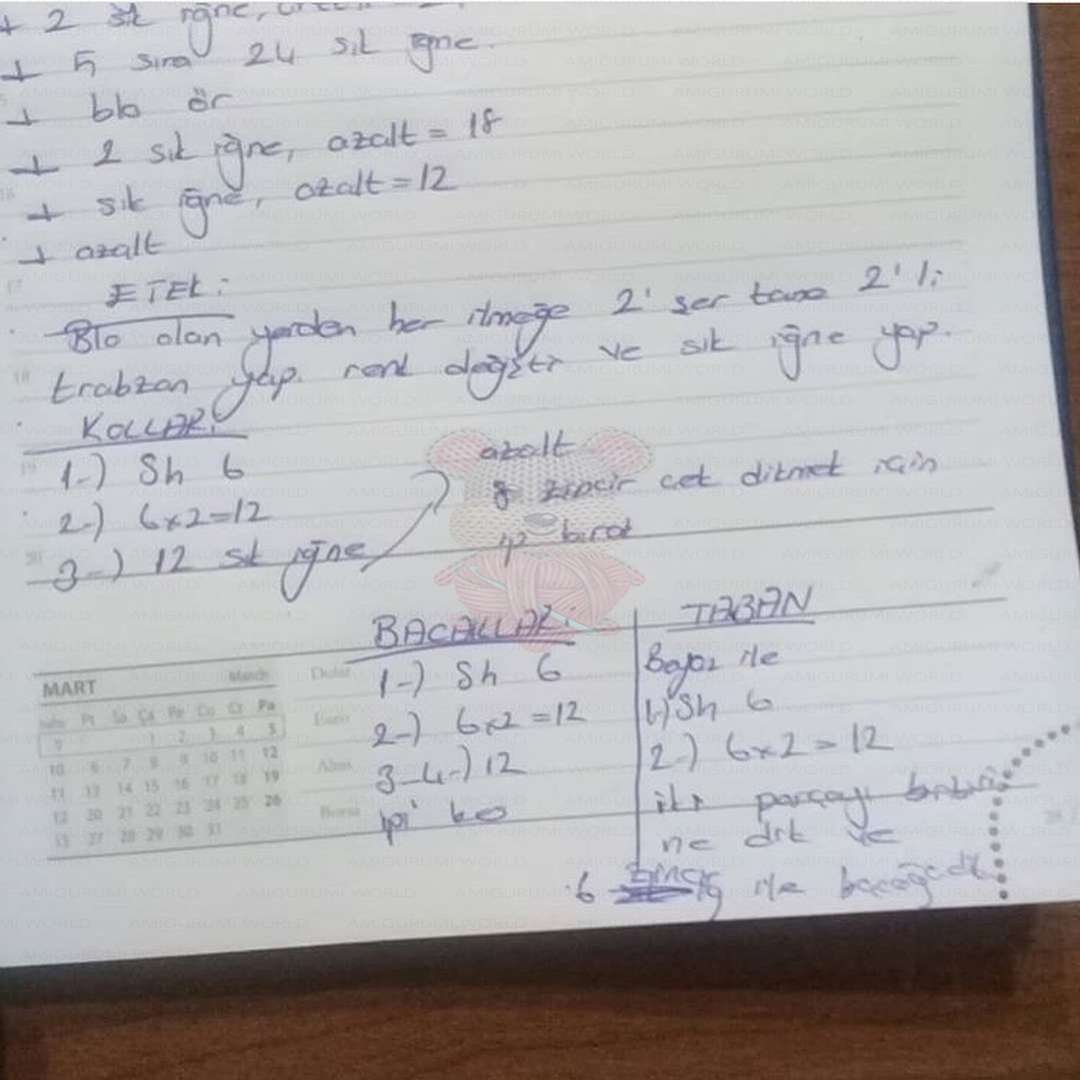 + 2 sık iğne,
+ 5 sıra 24 sık iğne.
+ blo ör
+ 2 sık iğne, azalt = 18
+ sık iğne, azalt = 12
+ azalt
ETEK:
Blo olan yerden her ilmeğe 2' şer tane 2' li
trabzan yap. renk değiştr ve sık iğne yap.
KOLLAR:
1-) Sh 6
2-) 6x2=12
3-) 12 sık iğne
azalt
8 zincir çek dikmek için
ip bırak
BACAKLAR:
1-) Sh 6
2-) 6x2=12
3-4-) 12
ipi kes
TABAN
Beyaz ile
1-) Sh 6
2-) 6x2=12
iki parçayı birbiri
ne dik ve
6 zincir ile bacağa dik
MART March
Pt Sa Ça Pe Cu Ct Pa
9 1 2 3 4 5
10 6 7 8 9 10 11 12
11 13 14 15 16 17 18 19
12 20 21 22 23 24 25 26
13 27 28 29 30 31
AMIGURUMI WORLD